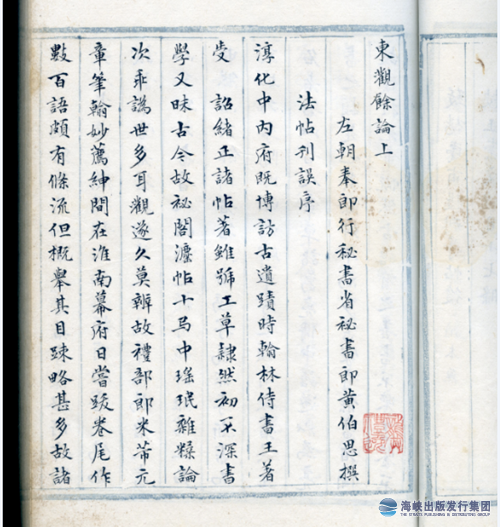 東觀餘論上
左朝奉郎行秘書省秘書郎黃伯思撰
法帖刊誤序
淳化中內府既博訪古遺蹟時翰林侍書王著
受 詔緒正諸帖著雖號工草隸然初不深書
學又昧古今故祕閣灋帖十弓中瑤珉雜糅論
次乖譌世多耳觀遂久莫辨故禮部郎米芾元
章筆翰妙薦紳間在淮南幕府日嘗跋卷尾作
數百語頗有條流但概舉其目疎略甚多故諸
海峡出版发行集团
THE STRAITS PUBLISHING & DISTRIBUTING GROUP